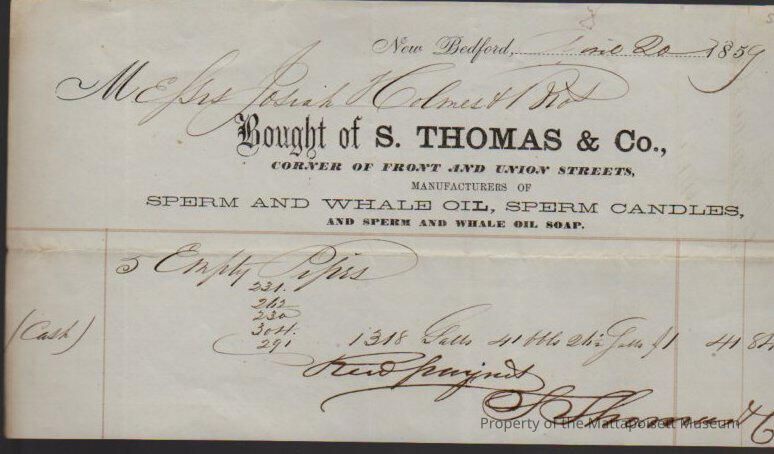 New Bedford, June 20 1859
Messrs Josiah Holmes & Bro
Bought of S. THOMAS & Co.,
CORNER OF FRONT AND UNION STREETS,
MANUFACTURERS OF
SPERM AND WHALE OIL, SPERM CANDLES,
AND SPERM AND WHALE OIL SOAP.
5 Empty Pipes
231.
262
230
304.
(Cash)
291 1318 Galls 41 bbls Galls $1 41 84
Recd payment
S Thomas & C
Property of the Mattapoisett Museum